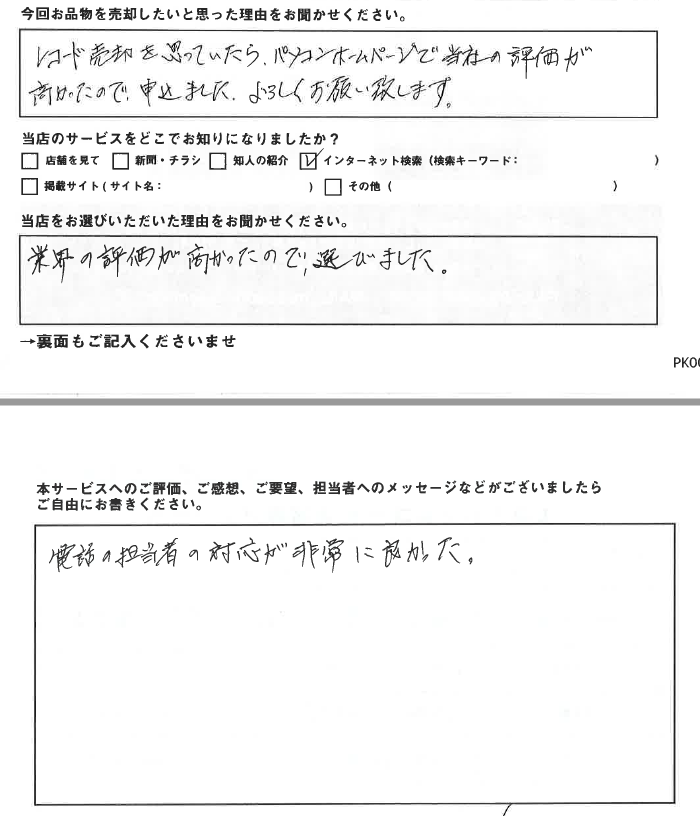 今回お品物を売却したいと思った理由をお聞かせください。
レコード売却を思っていたら、パソコンホームページで当社の評価が
高かったので、申込ました。よろしくお願い致します。
当店のサービスをどこでお知りになりましたか?
□ 店舗を見て □ 新聞・チラシ □ 知人の紹介 ☑ インターネット検索(検索キーワード: )
□ 掲載サイト(サイト名: ) □ その他( )
当店をお選びいただいた理由をお聞かせください。
業界の評価が高かったので、選びました。
→裏面もご記入くださいませ
PK00
本サービスへのご評価、ご感想、ご要望、担当者へのメッセージなどがございましたら
ご自由にお書きください。
電話の担当者の対応が非常に良かった。